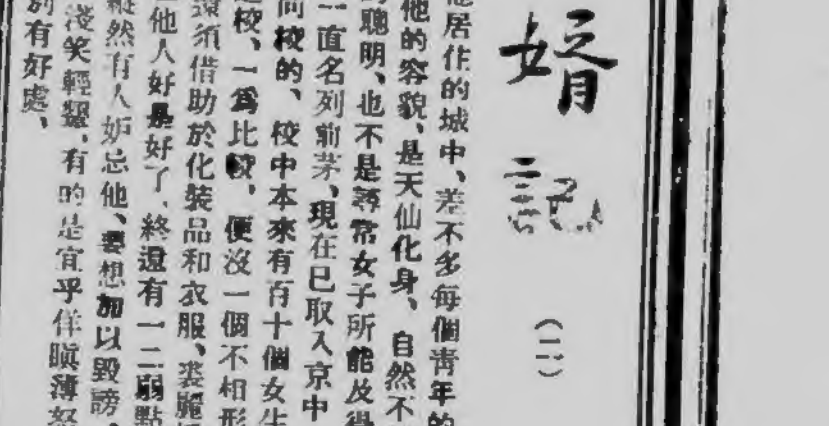 婿記
(二)
居住的城中、差不多每個青年的
他的容貌、是天仙化身、自然不
聰明、也不是尋常女子所能及得
一直名列前茅、現在已取入京中
同校的、校中本來有百十個女生
校、一爲比較、便沒一個不相形
還須借助於化裝品和衣服、裘麗
他人好是好了、終還有一二弱點
縱然有人妒忌他、要想加以毀謗、
淺笑輕顰、有的是宜乎佯瞋薄怒
別有好處、